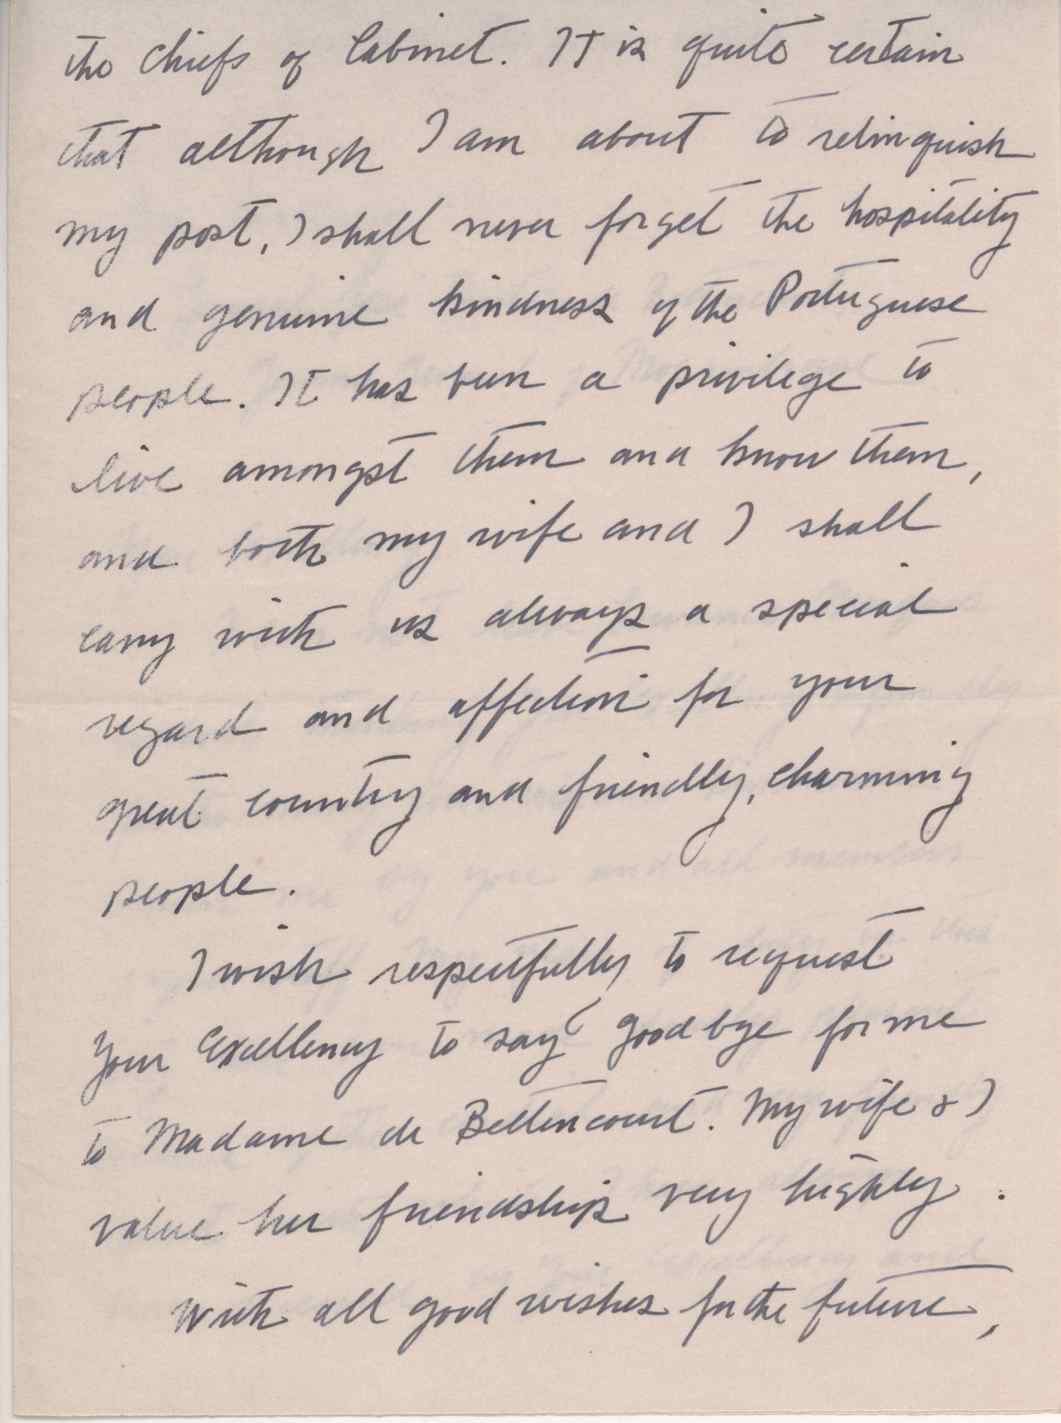 the Chiefs of Cabinet. It is quite certain
that although I am about to relinquish
my post, I shall never forget the hospitality
and genuine kindness of the Portuguese
people. It has been a privilege to
live amongst them and know them,
and both my wife and I shall
carry with us always a special
regard and affection for your
great country and friendly, charming
people.
I wish respectfully to request
Your Excellency to say goodbye for me
to Madame de Bettencourt. My wife & I
value her friendship very highly.
With all good wishes for the future,